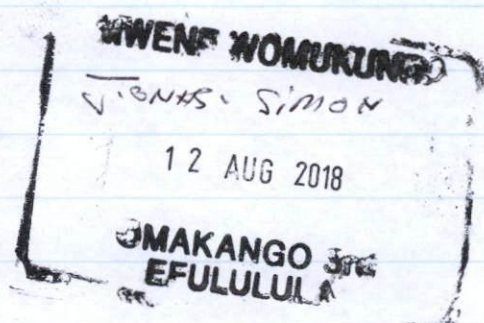 MWENE WOMUKUNDA
JONAS. SIMON
12 AUG 2018
OMAKANGO
EFULULULA